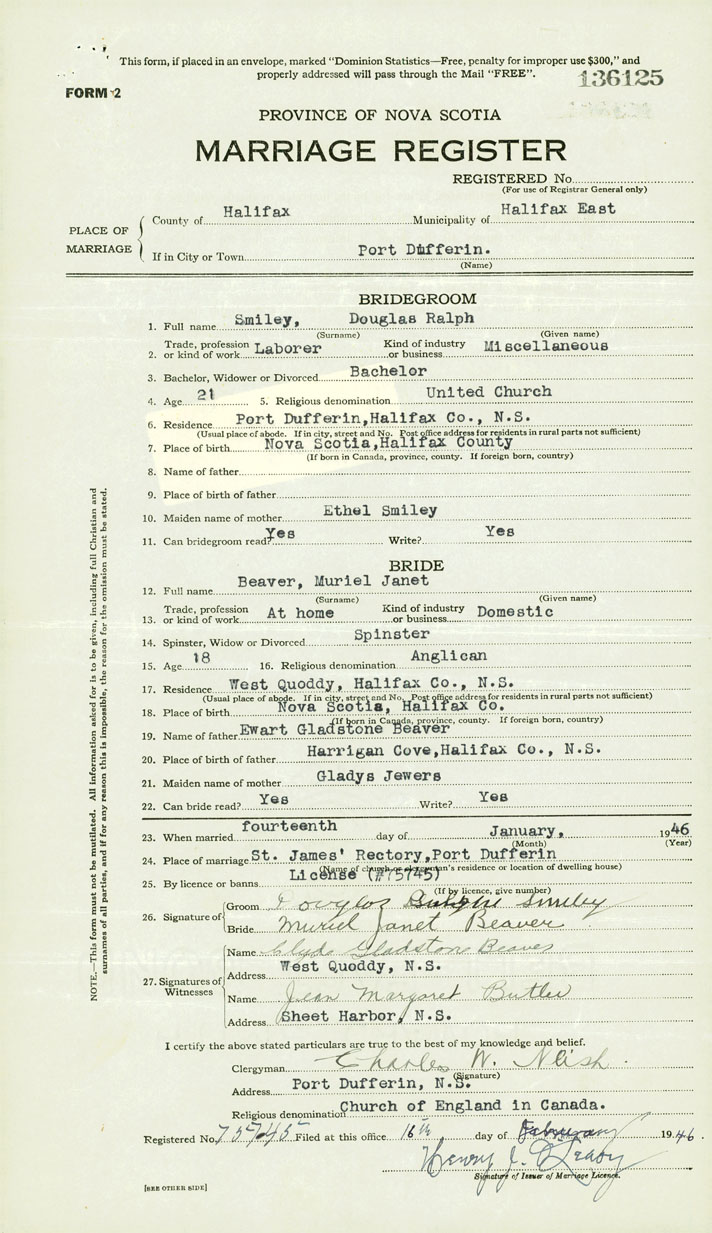 This form, if placed in an envelope, marked "Dominion Statistics—Free, penalty for improper use $300," and
properly addressed will pass through the Mail "FREE".
136125
FORM 2
PROVINCE OF NOVA SCOTIA
MARRIAGE REGISTER
REGISTERED No.
(For use of Registrar General only)
PLACE OF MARRIAGE
County of Halifax Municipality of Halifax East
If in City or Town Port Dufferin.
(Name)
BRIDEGROOM
1. Full name Smiley, Douglas Ralph
(Surname) (Given name)
2. Trade, profession or kind of work Laborer Kind of industry or business Miscellaneous
3. Bachelor, Widower or Divorced Bachelor
4. Age 21 5. Religious denomination United Church
6. Residence Port Dufferin,Halifax Co., N.S.
(Usual place of abode. If in city, street and No. Post office address for residents in rural parts not sufficient)
7. Place of birth Nova Scotia,Halifax County
(If born in Canada, province, county. If foreign born, country)
8. Name of father
9. Place of birth of father
10. Maiden name of mother Ethel Smiley
11. Can bridegroom read? Yes Write? Yes
BRIDE
12. Full name Beaver, Muriel Janet
(Surname) (Given name)
13. Trade, profession or kind of work At home Kind of industry or business Domestic
14. Spinster, Widow or Divorced Spinster
15. Age 18 16. Religious denomination Anglican
17. Residence West Quoddy, Halifax Co., N.S.
(Usual place of abode. If in city, street and No. Post office address for residents in rural parts not sufficient)
18. Place of birth Nova Scotia, Halifax Co.
(If born in Canada, province, county. If foreign born, country)
19. Name of father Ewart Gladstone Beaver
20. Place of birth of father Harrigan Cove,Halifax Co., N.S.
21. Maiden name of mother Gladys Jewers
22. Can bride read? Yes Write? Yes
23. When married fourteenth day of January, 1946
(Month) (Year)
24. Place of marriage St. James' Rectory,Port Dufferin
(Name of church or clergyman's residence or location of dwelling house)
25. By licence or banns License (#75745)
(If by licence, give number)
26. Signature of Groom Douglas Smiley
Bride Muriel Janet Beaver
27. Signatures of Witnesses
Name Clyde Gladstone Beaver
Address West Quoddy, N.S.
Name Jean Margaret Butler
Address Sheet Harbor, N.S.
I certify the above stated particulars are true to the best of my knowledge and belief.
Clergyman Charles W. Nlish
(Signature)
Address Port Dufferin, N.S.
Religious denomination Church of England in Canada.
Registered No. 75745 Filed at this office 16th day of February 1946.
Henry J. O'Leary
Signature of Issuer of Marriage Licence.
[SEE OTHER SIDE]
NOTE.—This form must not be mutilated. All information asked for is to be given, including full Christian and
surnames of all parties, and if for any reason this is impossible, the reason for the omission must be stated.